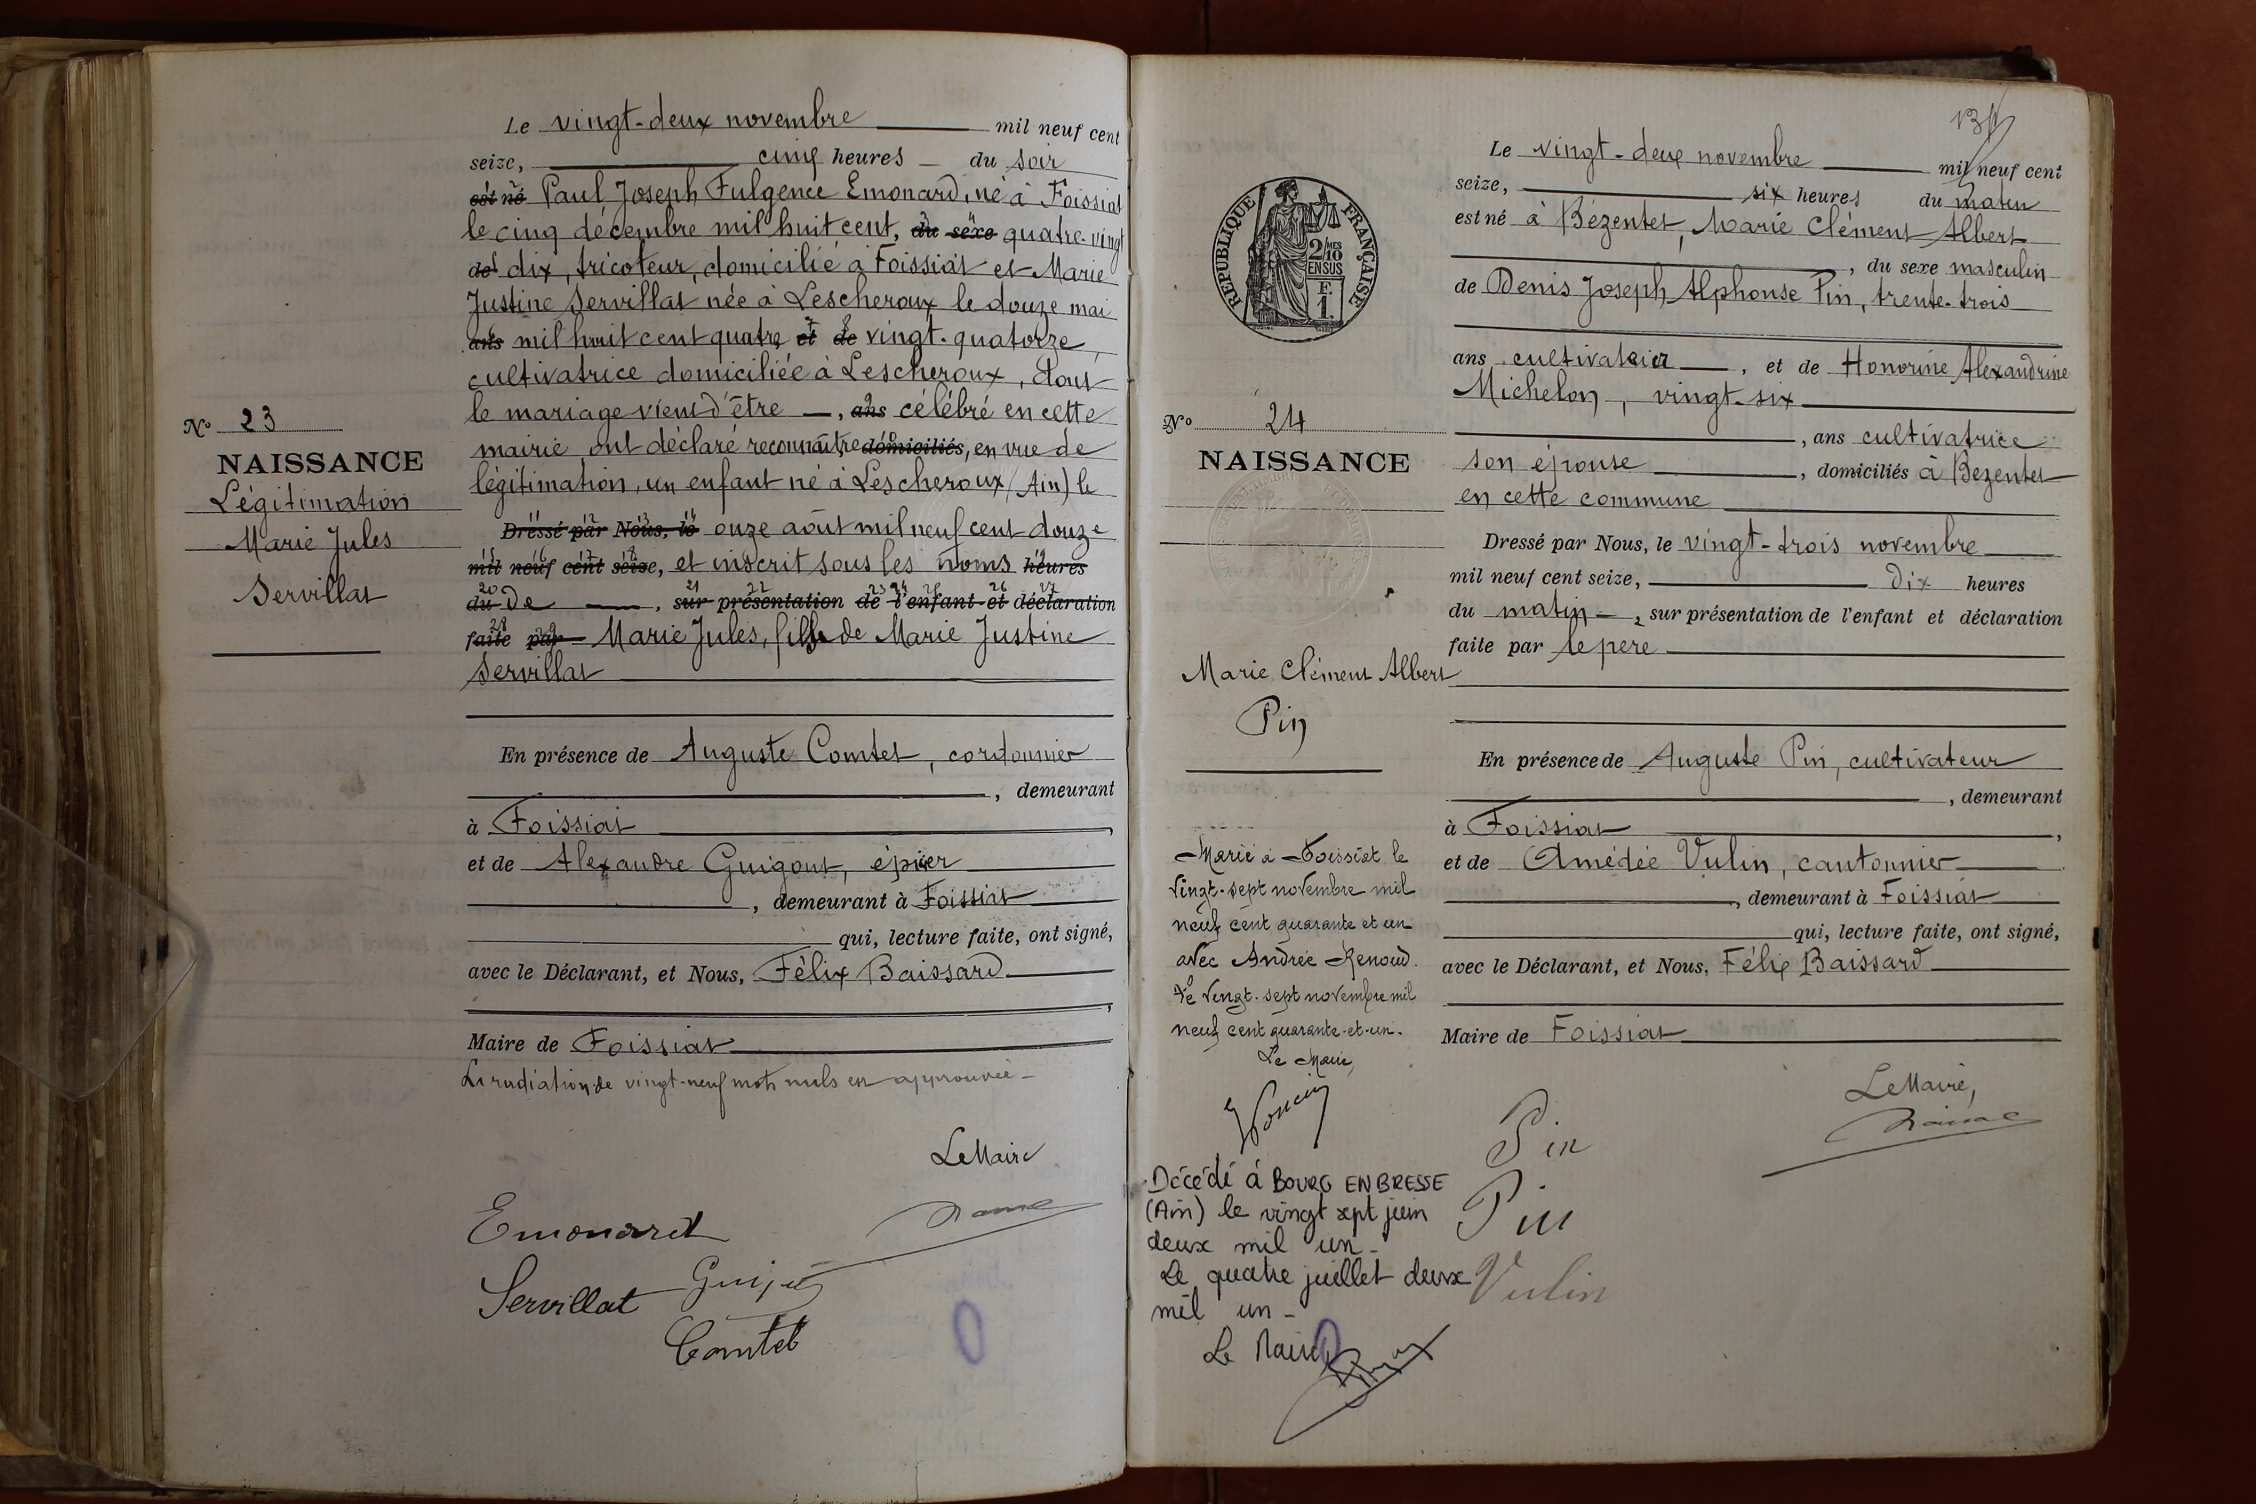 Le vingt-deux novembre mil neuf cent
seize, cinq heures du soir
est né Paul Joseph Fulgence Emonard, né à Foissiat
le cinq décembre mil huit cent, du sexe quatre-vingt
de dix, tricoteur, domicilié à Foissiat et Marie
Justine Servillat née à Lescheroux le douze mai
ans mil huit cent quatre et de vingt-quatorze,
cultivatrice domiciliée à Lescheroux, dont
le mariage vient d'être, ans célébré en cette
mairie ont déclaré reconnaître domiciliés, en vue de
légitimation, un enfant né à Lescheroux (Ain) le
Dressé par Nous, le onze août mil neuf cent douze
mil neuf cent seize, et inscrit sous les noms heures
du De, sur présentation de l'enfant et déclaration
faite par Marie Jules, fils de Marie Justine
Servillat
No 23
NAISSANCE
Légitimation
Marie Jules
Servillat
En présence de Auguste Comtet, cordonnier
, demeurant
à Foissiat,
et de Alexandre Guigout, épicier
, demeurant à Foissiat
qui, lecture faite, ont signé,
avec le Déclarant, et Nous, Félix Baissard
,
Maire de Foissiat
La radiation de vingt-neuf mots nuls est approuvée
Le Maire
Emonard
Servillat
Comtet
134
Le vingt-deux novembre mil neuf cent
seize, six heures du matin
est né à Bézentet, Marie Clément Albert
, du sexe masculin
de Denis Joseph Alphonse Pin, trente-trois
ans cultivateur, et de Honorine Alexandrine
Michelon, vingt-six
, ans cultivatrice
son épouse, domiciliés à Bézentet
en cette commune
Dressé par Nous, le vingt-trois novembre
mil neuf cent seize, dix heures
du matin, sur présentation de l'enfant et déclaration
faite par le père
RÉPUBLIQUE FRANÇAISE
2/10 MES
EN SUS
F.
1.
No 24
NAISSANCE
Marie Clément Albert
Pin
En présence de Auguste Pin, cultivateur
, demeurant
à Foissiat,
et de Amédée Vulin, cantonnier
, demeurant à Foissiat
qui, lecture faite, ont signé,
avec le Déclarant, et Nous, Félix Baissard
Maire de Foissiat
Le Maire,
Pin
Pin
Vulin
Marié à Foissiat le
vingt-sept novembre mil
neuf cent quarante et un
avec Andrée Renoud.
Le vingt-sept novembre mil
neuf cent quarante-et-un.
Le Maire,
Décédé à BOURG EN BRESSE
(Ain) le vingt sept juin
deux mil un -
Le quatre juillet deux
mil un -
Le Maire